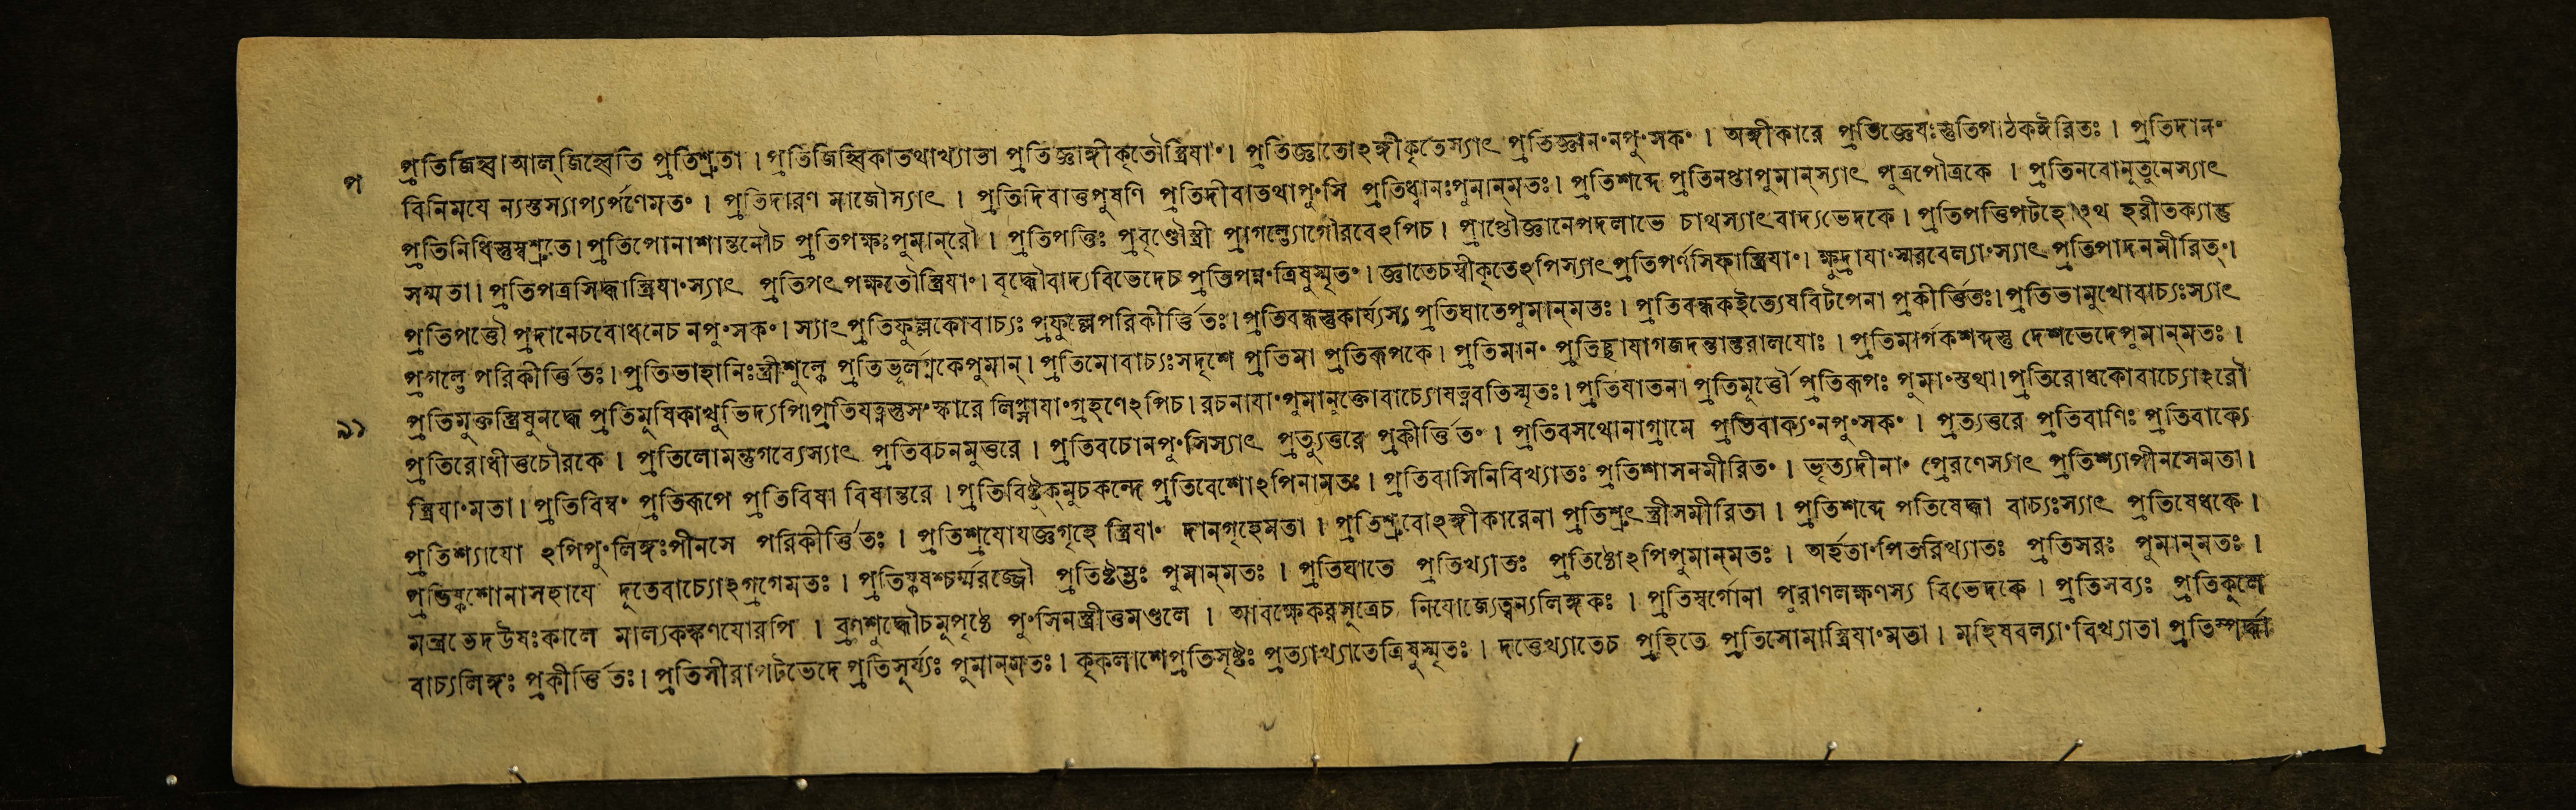 প্রতিজিহ্বা আল্‌জিহ্বেতি প্রতিশ্রুতা । প্রতিজিহ্বিকাতথাখ্যাতা প্রতিজ্ঞাঙ্গীকৃতৌস্ত্রিযাং । প্রতিজ্ঞাতোঽঙ্গীকৃতেস্যাৎ প্রতিজ্ঞানংনপুংসকং । অঙ্গীকারে প্রতিজ্ঞেযঃস্তুতিপাঠকঈরিতঃ । প্রতিদানং
প বিনিমযে ন্যস্তস্যাপ্যর্পণেমতং । প্রতিদারণ মাজৌস্যাৎ । প্রতিদিবাত্তপুষণি প্রতিদীবাতথাপুংসি প্রতিধ্বানঃপুমান্‌মতঃ । প্রতিশব্দে প্রতিনপ্তাপুমান্‌স্যাৎ পুত্রপৌত্রকে । প্রতিনবোনূতুনেস্যাৎ
প্রতিনিধিস্তু । প্রতিপোনাশান্তনৌচ প্রতিপক্ষঃপুমান্‌রৌ । প্রতিপত্তিঃ প্রবৃণ্তৌস্ত্রী প্রাগল্ভ্যেগৌরবেঽপিচ । প্রাপ্তৌজ্ঞানেপদলাভে চাথস্যাৎবাদ্যভেদকে । প্রতিপত্তিপটহোঽথ হরীতক্যান্তু
সম্মতা । প্রতিপত্রসিদ্ধাস্ত্রিযাংস্যাৎ প্রতিপৎপক্ষতৌস্ত্রিযাং । বৃদ্ধৌবাদ্যবিভেদেচ প্রতিপন্নংত্রিষুস্মৃতং । জ্ঞাতেচস্বীকৃতেঽপিস্যাৎ প্রতিপর্ণসিফাস্ত্রিযাং । ক্ষুদ্রাযাং স্যাৎ প্রতিপাদনমীরিতং ।
প্রতিপত্তৌ প্রদানেচবোধনেচ নপুংসকং । স্যাৎ প্রতিফুল্লকোবাচ্যঃ প্রফুল্লেপরিকীর্ত্তিতঃ । প্রতিবন্ধস্তুকার্য্যস্য প্রতিঘাতেপুমান্‌মতঃ । প্রতিবন্ধকইত্যেষবিটপেনা প্রকীর্ত্তিতঃ । প্রতিভামুখোবাচ্যঃস্যাৎ
প্রগল্ভে পরিকীর্ত্তিতঃ । প্রতিভাহানিঃস্ত্রীশুল্কে প্রতিভূর্লগ্নকেপুমান্‌ । প্রতিমোবাচ্যঃসদৃশে প্রতিমা প্রতিরূপকে । প্রতিমানং প্রতিচ্ছাযাগজদন্তান্তরালযোঃ । প্রতিমার্গকশব্দস্তু দেশভেদেপুমান্‌মতঃ ।
৯১ প্রতিমুক্তস্ত্রিষুনদ্ধে প্রতিমূষিকাখুভিদ্যপি । প্রতিযত্নস্তুসংস্কারে লিপ্সাযাংগ্রহণেঽপিচ । রচনাযাংপুমানুক্তোবাচ্যোযত্নবতিস্মৃতঃ । প্রতিযাতনা প্রতিমূর্ত্তৌ প্রতিরূপঃ পুমাংস্তথা । প্রতিরোধকোবাচ্যোঽরৌ
প্রতিরোধীত্তচৌরকে । প্রতিলোমন্তুগব্যেস্যাৎ প্রতিবচনমুত্তরে । প্রতিবচোনপুংসিস্যাৎ প্রত্যুত্তরে প্রকীর্ত্তিতং । প্রতিবসথোনাগ্রামে প্রতিবাক্যংনপুংসকং । প্রত্যত্তরে প্রতিবাণিঃ প্রতিবাক্যে
স্ত্রিযাংমতা । প্রতিবিম্বং প্রতিরূপে প্রতিবিষা বিষান্তরে । প্রতিবিষ্টুক্‌মুচকন্দে প্রতিবেশোঽপিনামতঃ । প্রতিবাসিনিবিখ্যাতঃ প্রতিশাসনমীরিতং । ভৃত্যদীনাং প্রেরণেস্যাৎ প্রতিশ্যাপীনসেমতা ।
প্রতিশ্যাযো ঽপিপুংলিঙ্গঃপীনসে পরিকীর্ত্তিতঃ । প্রতিশ্রযোযজ্ঞগৃহে স্ত্রিযাং দানগৃহেমতা । প্রতিশ্রবোঽঙ্গীকারেনা প্রতিশ্রুৎ স্ত্রীসমীরিতা । প্রতিশব্দে পতিষেদ্ধা বাচ্যঃস্যাৎ প্রতিষেধকে ।
প্রতিষ্কশোনাসহাযে দূতেবাচ্যোঽগ্রগেমতঃ । প্রতিষ্কষশ্চর্ম্মরজ্জৌ প্রতিষ্টম্ভঃ পুমান্‌মতঃ । প্রতিঘাতে প্রতিখ্যাতঃ প্রতিষ্ঠোঽপিপুমান্‌মতঃ । অর্হতাংপিতরিখ্যাতঃ প্রতিসরঃ পুমান্‌মতঃ ।
মন্ত্রভেদউষঃকালে মাল্যকঙ্কণযোরপি । ব্রণশুদ্ধৌচমূপৃষ্ঠে পুংসিনস্ত্রীত্তমণ্ডলে । আবক্ষেকরসূত্রেচ নিযোজ্যেত্বন্যলিঙ্গকঃ । প্রতিস্বর্গোনা পুরাণলক্ষণস্য বিভেদকে । প্রতিসব্যঃ প্রতিকূলে
বাচ্যলিঙ্গঃ প্রকীর্ত্তিতঃ । প্রতিসীরাপটভেদে প্রতিসূর্য্যঃ পুমান্‌মতঃ । কৃকলাশেপ্রতিসৃষ্টঃ প্রত্যাখ্যাতেত্রিষুস্মৃতঃ । দত্তেখ্যাতেচ প্রহিতে প্রতিসোমাস্ত্রিযাংমতা । মহিষবল্যাংবিখ্যাতা প্রতিস্পর্দ্ধা